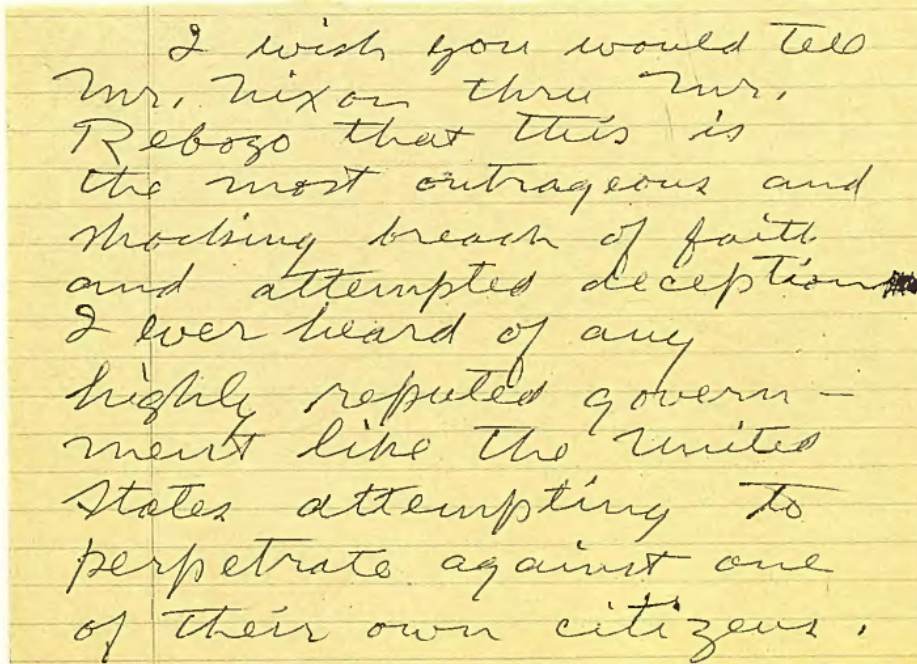 I wish you would tell
Mr. Nixon thru Mr.
Rebozo that this is
the most outrageous and
shocking breach of faith
and attempted deception
I ever heard of any
highly reputed govern-
ment like the United
States attempting to
perpetrate against one
of their own citizens.